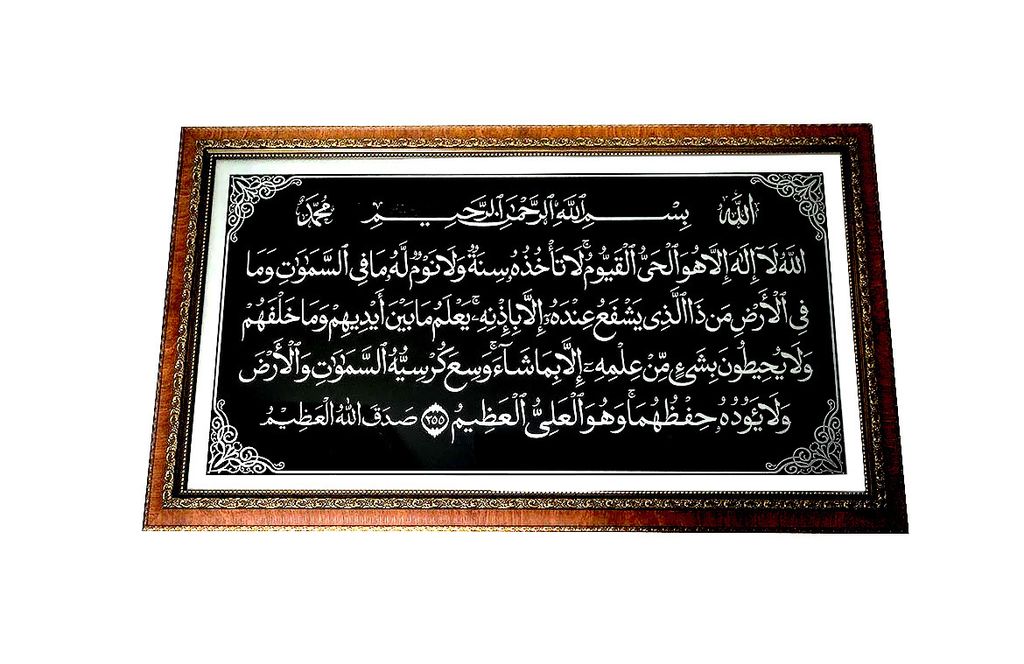 الله بِسْمِ ٱللَّهِ ٱلرَّحْمَٰنِ ٱلرَّحِيمِ محمد
ٱللَّهُ لَآ إِلَٰهَ إِلَّا هُوَ ٱلْحَىُّ ٱلْقَيُّومُ ۚ لَا تَأْخُذُهُۥ سِنَةٌ وَلَا نَوْمٌ ۚ لَّهُۥ مَا فِى ٱلسَّمَٰوَٰتِ وَمَا
فِى ٱلْأَرْضِ ۗ مَن ذَا ٱلَّذِى يَشْفَعُ عِندَهُۥٓ إِلَّا بِإِذْنِهِۦ ۚ يَعْلَمُ مَا بَيْنَ أَيْدِيهِمْ وَمَا خَلْفَهُمْ
وَلَا يُحِيطُونَ بِشَىْءٍ مِّنْ عِلْمِهِۦٓ إِلَّا بِمَا شَآءَ ۚ وَسِعَ كُرْسِيُّهُ ٱلسَّمَٰوَٰتِ وَٱلْأَرْضَ
وَلَا يَـُٔودُهُۥ حِفْظُهُمَا ۚ وَهُوَ ٱلْعَلِىُّ ٱلْعَظِيمُ ٢٥٥ صَدَقَ اللهُ العَظِيمُ